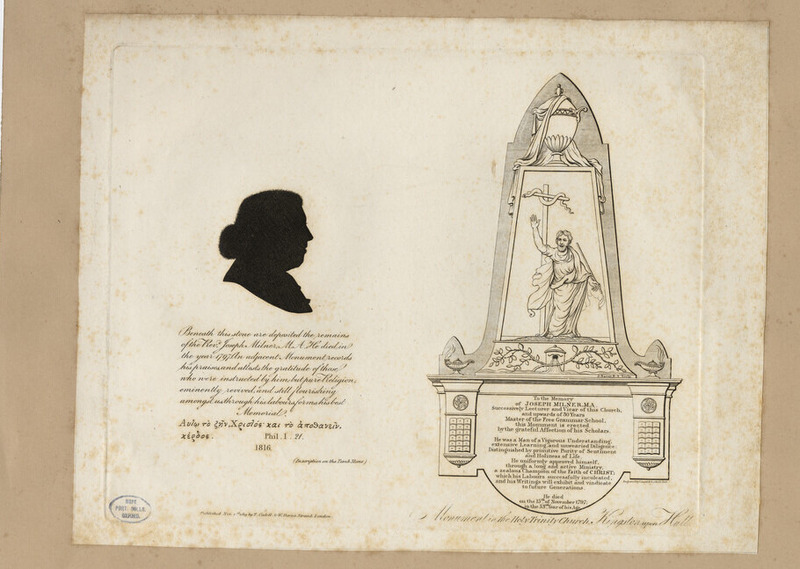 Beneath this stone are deposited the remains
of the Revd. Joseph Milner, M. A. He died in
the year 1797. An adjacent Monument records
his praises, and attests the gratitude of those
who were instructed by him; but pure Religion,
eminently revived, and still flourishing
amongst us through his labours, forms his best
Memorial.
το ζῆν, Χριστός και το ἀποθανεῖν,
κέρδος. Phil. I. 21.
1816.
(Inscription on the Tomb Stone)
Published by T. Cadell & W. Davies Strand London.
To the Memory
of JOSEPH MILNER, M.A.
Successively Lecturer and Vicar of this Church,
and upwards of 30 Years
Master of the Free Grammar School,
this Monument is erected
by the grateful Affection of his Scholars.
He was a Man of a Vigorous Understanding,
extensive Learning and unwearied Diligence:
Distinguished by primitive Purity of Sentiment
and Holiness of Life.
He uniformly approved himself,
through a long and active Ministry,
a zealous Champion of the Faith of CHRIST;
which his Labours successfully inculcated,
and his Writings will exhibit and vindicate
to future Generations.
He died
on the 15th. of November 1797,
in the 53rd. Year of his Age.
Monument in the Holy Trinity Church, Kingston upon Hull